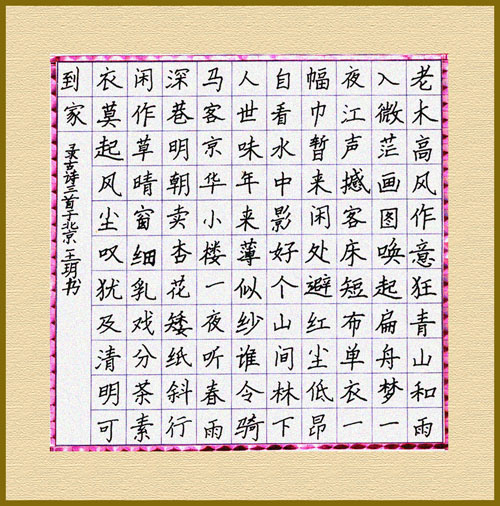 老木高风作意狂青山和雨
入微茫画图唤起扁舟梦一
夜江声撼客床短布单衣一
幅巾暂来闲处避红尘低昂
自看水中影好个山间林下
人世味年来薄似纱谁令骑
马客京华小楼一夜听春雨
深巷明朝卖杏花矮纸斜行
闲作草晴窗细乳戏分茶素
衣莫起风尘叹犹及清明可
到家
录古诗三首于北京王玥书